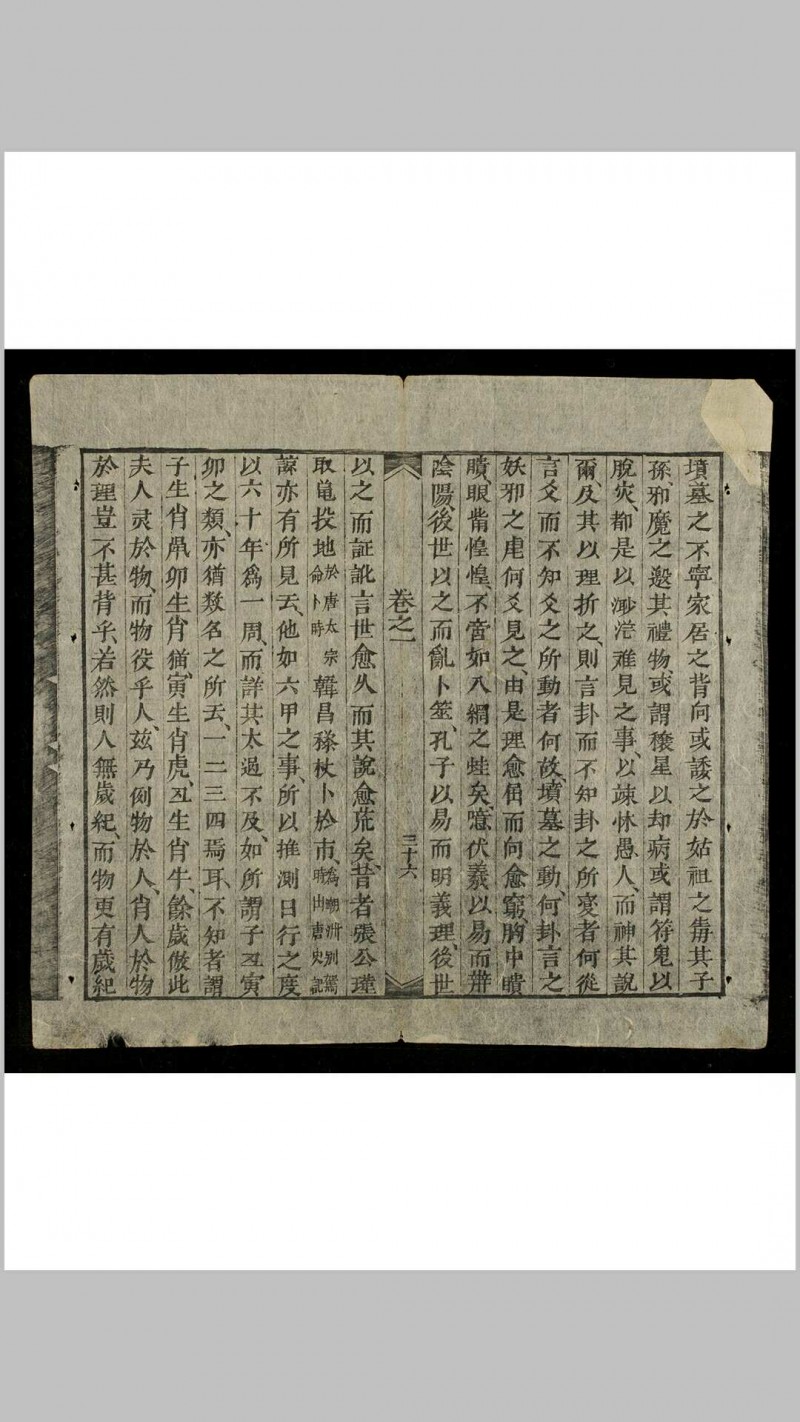 墳墓之不寧家居之背向或諉之於姑祖之毒其子
孫、邪魔之邀其禮物、或謂禳星以却病或謂符鬼以
脫灾、都是以渺茫难見之事、以竦怵愚人、而神其說
爾、及其以理折之、則言卦而不知卦之所变者何從
言爻而不知爻之所動者何故、墳墓之動、何卦言之
妖邪之虐何爻見之、由是理愈屈而向愈窮、胸中瞆
瞆、眼眥惶惶、不啻如入網之蛙矣、噫、伏羲以易而辨
陰陽、後世以之而亂卜筮、孔子以易而明義理、後世
卷之一
三十六
以之而証訛言世愈久而其說愈荒矣、昔者張公瑾
取龟投地於唐太宗命卜時韓昌稌杖卜於市、為潮州別駕時出唐史記
諒亦有所見云、他如六甲之事、所以推測日行之度
以六十年爲一周、而詳其太過不及、如所謂子丑寅
卯之類、亦猶数名之所云、一二三四焉耳、不知者謂
子生肖鼡卯生肖猫、寅生肖虎、丑生肖牛、餘歲倣此
夫人灵於物、而物役乎人、兹乃例物於人、肖人於物
於理豈不甚背乎、若然則人無歲紀、而物更有歲紀